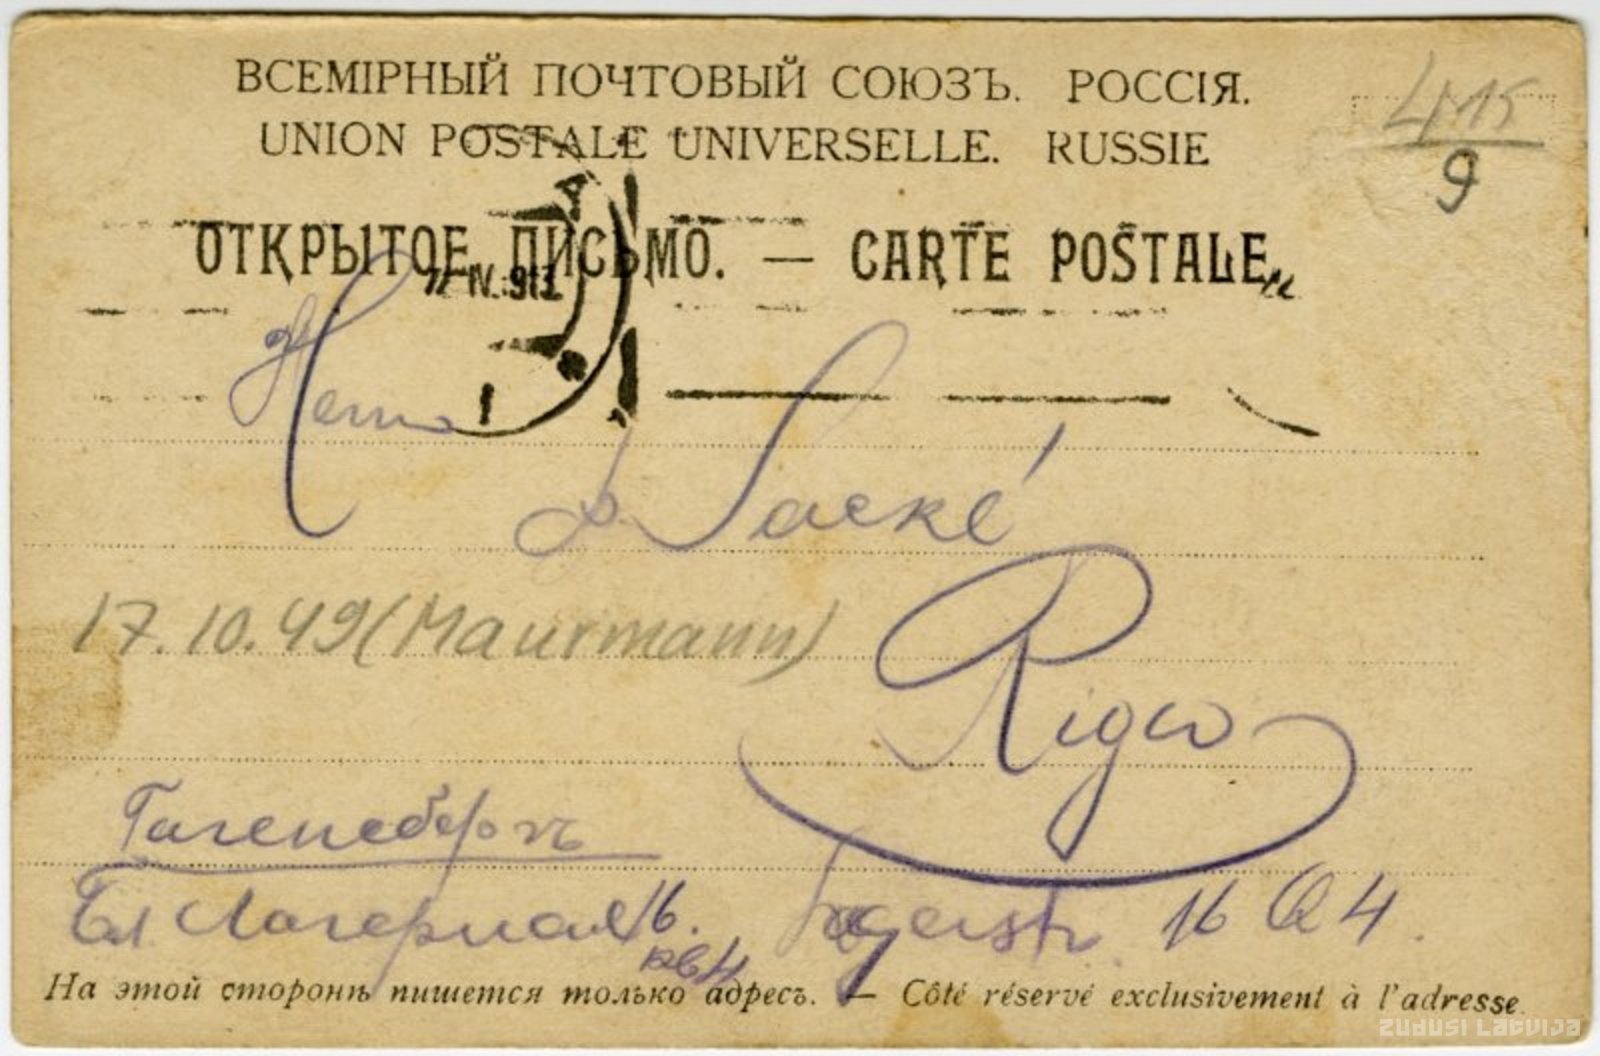 ВСЕМІРНЫЙ ПОЧТОВЫЙ СОЮЗЪ. РОССІЯ.
UNION POSTALE UNIVERSELLE. RUSSIE
415
9
ОТКРЫТОЕ ПИСЬМО. — CARTE POSTALE
IV.913
Herrn
Lacké
17.10.49 (Maurmann)
Riga
Гагенсбергъ
Бл. Лагерная 16.
кв 4
Lagerstr. 16 Q 4.
На этой сторонѣ пишется только адресъ. — Côté réservé exclusivement à l'adresse.
ZUDUSI LATVIJA